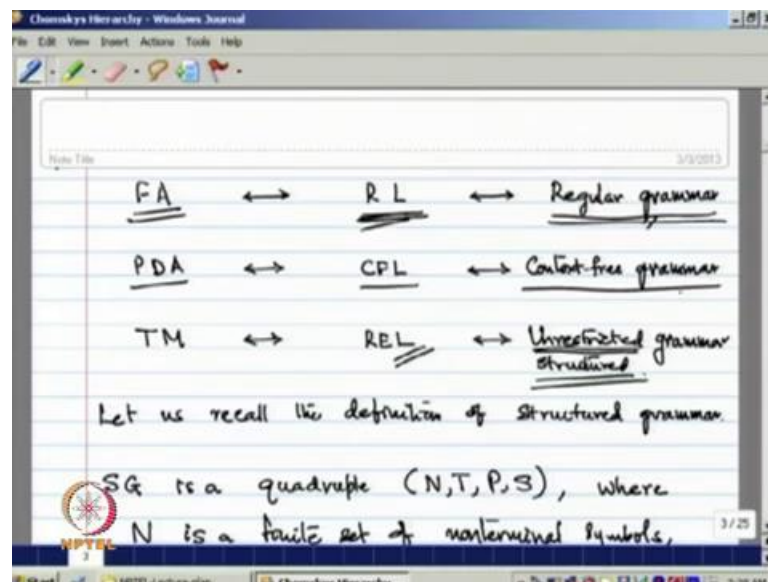 Chomskys Hierarchy - Windows Journal
File Edit View Insert Actions Tools Help
Note Title 3/3/2013
FA ↔ RL ↔ Regular grammar
PDA ↔ CFL ↔ Context-free grammar
TM ↔ REL ↔ Unrestricted grammar
structured
Let us recall the definition of structured grammar.
SG is a quadruple (N,T,P,S), where
N is a finite set of nonterminal symbols,
NPTEL
3
3/25
Start
Chomskys Hierarchy